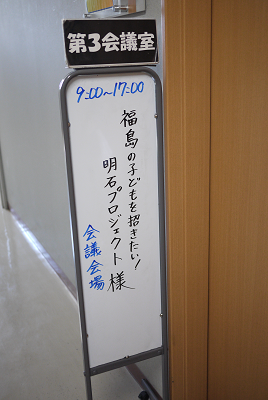 第3会議室
9:00~17:00
福島の子どもを招きたい!
明石プロジェクト様
会議会場